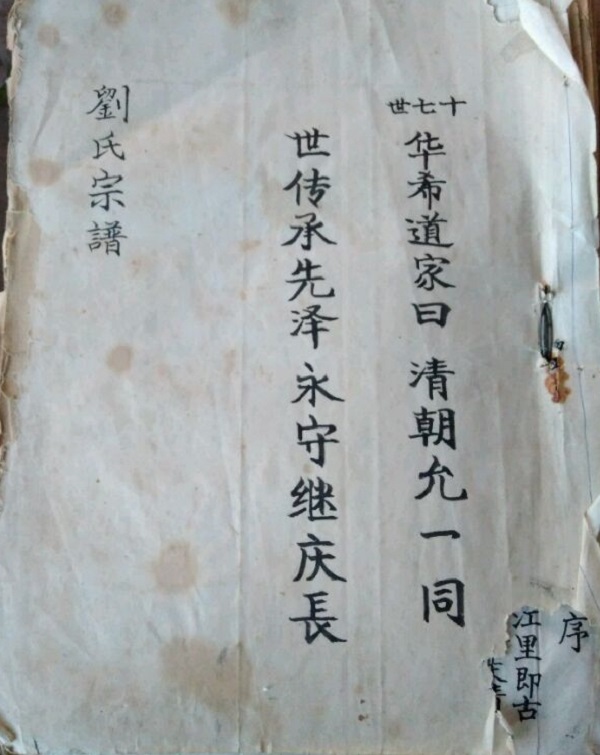 序
江里即古
十七世
华希道家曰 清朝允一同
世传承先泽 永守继庆長
劉氏宗譜